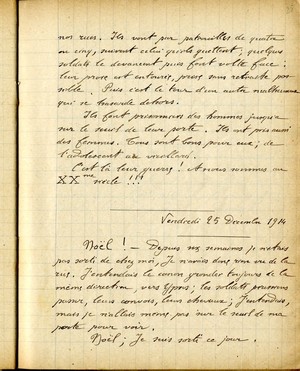 nos rues. Ils vont par patrouilles de quatre
ou cinq, suivent celui qu'ils guettent; quelques
soldats le devancent puis font volte face:
leur proie est entourée, prise, sans retraite pos-
sible. Puis c'est le tour d'un autre malheureux
qui se hasarde dehors.
Ils font prisonniers des hommes jusque
sur le seuil de leur porte. Ils ont pris aussi
des femmes. Tous sont bons pour eux; de
l'adolescent au vieillard.
C'est là leur guerre! Et nous sommes au
XXme siècle!!!
Vendredi 25 Décembre 1914
Noël! — Depuis six semaines je n'étais
pas sorti de chez moi. Je n'avais donc rien vu de la
rue. J'entendais le canon gronder toujours de la
même direction, vers Ypres; les soldats
passer, leurs convois, leurs chevaux; j'entendais,
mais je n'allais même pas sur le seuil de ma
porte pour voir.
Noël; Je suis sorti ce jour.